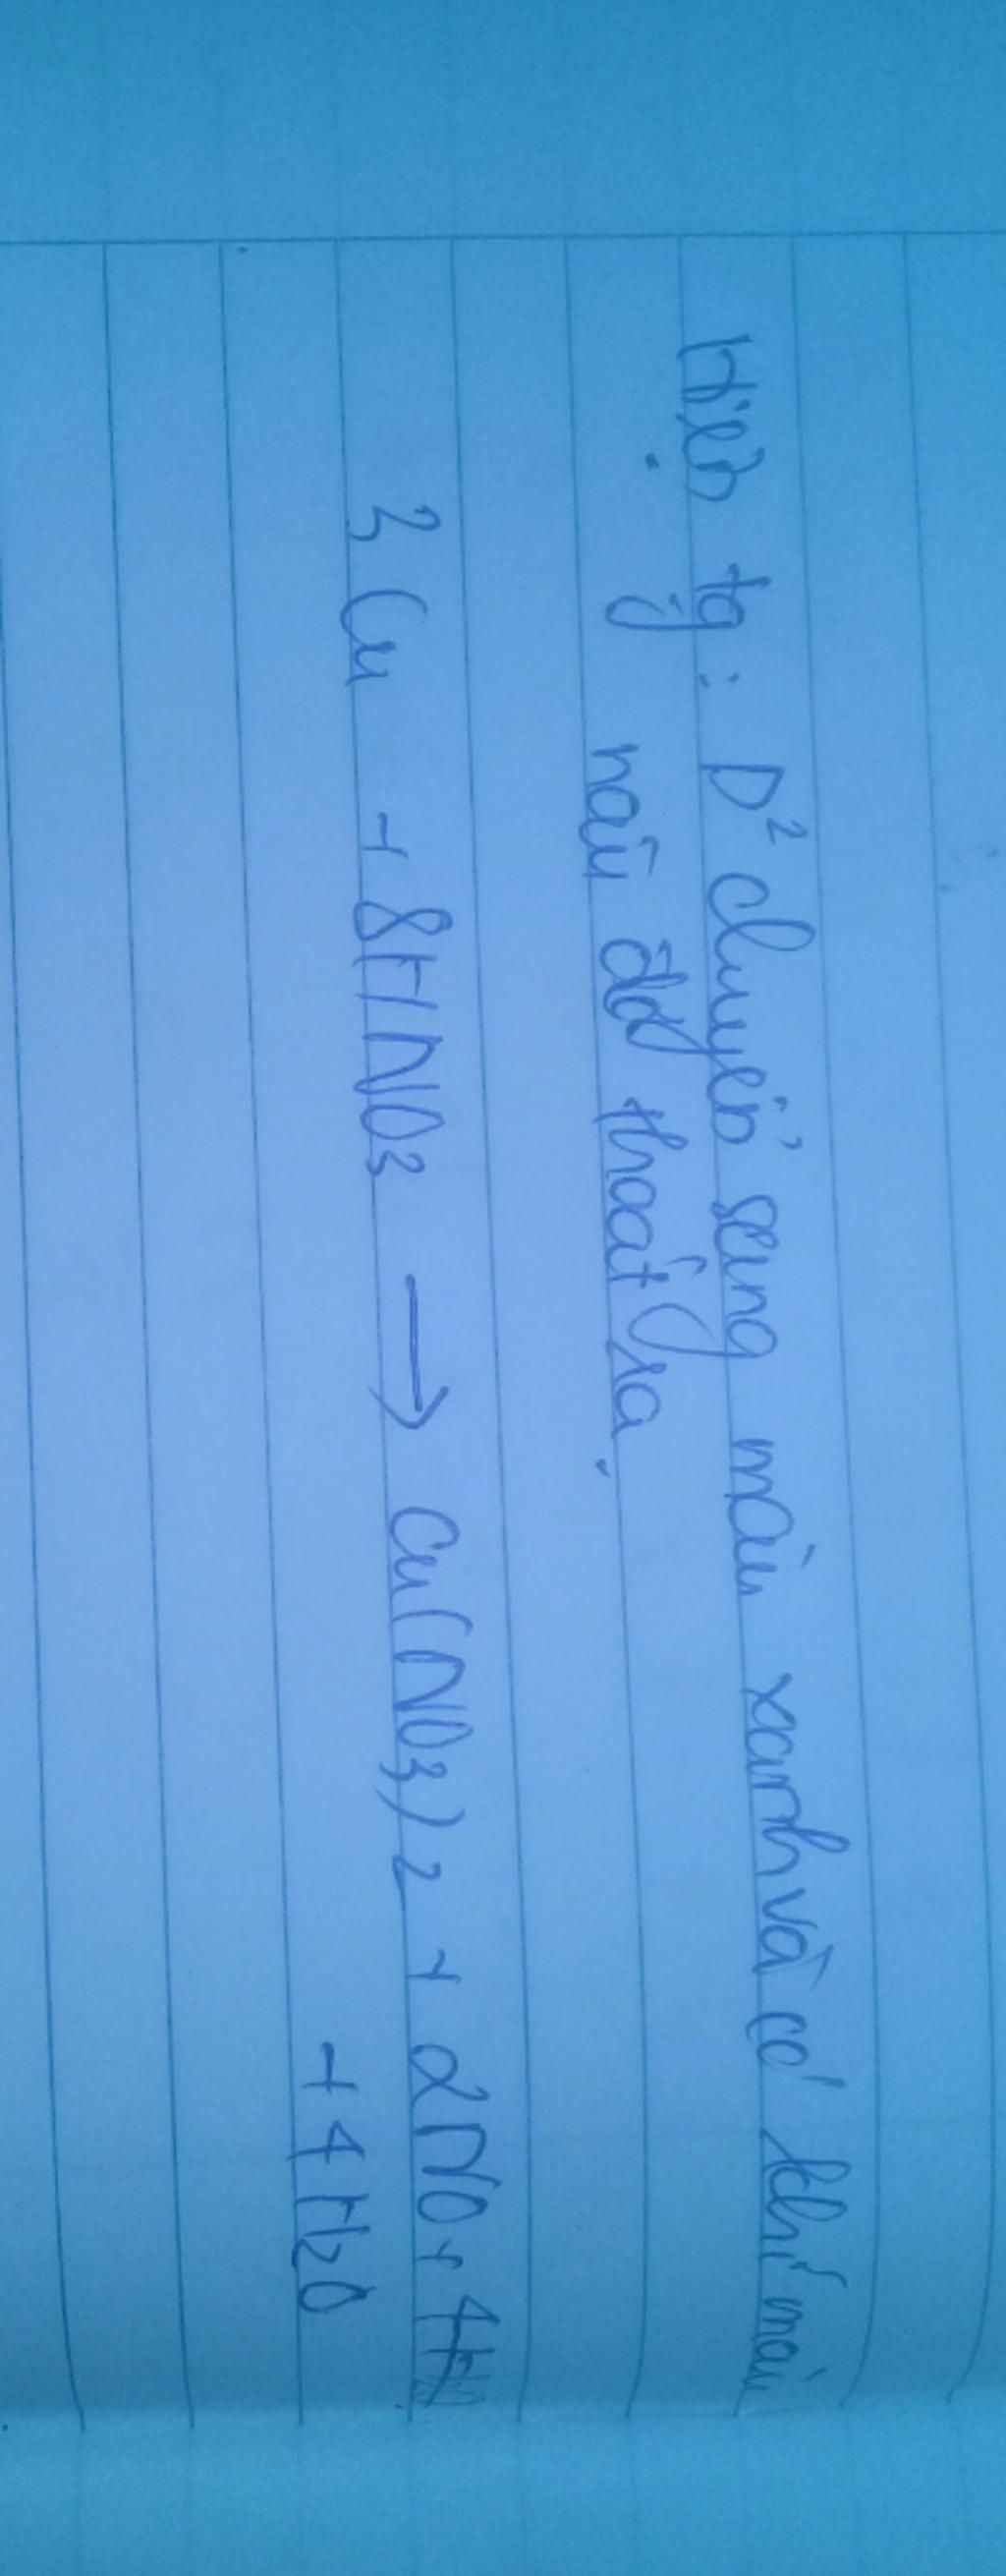 Hiện tg : D² chuyển sang màu xanh và có khí màu
nâu đỏ thoát ra.
3 Cu + 8HNO3 → Cu(NO3)2 + 2NO + 4
+ 4H2O